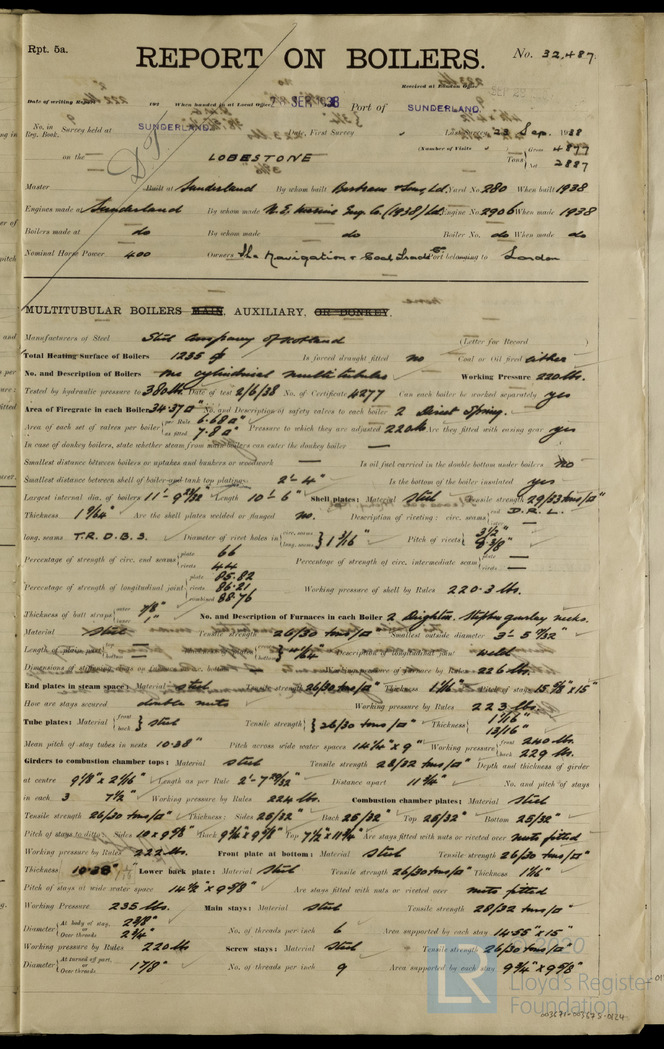 Rpt. 5a.
REPORT ON BOILERS.
No. 32,487.
Received at London Office
Date of writing Report 192 When handed in at Local Office SEP 1938 Port of SUNDERLAND
No. in Reg. Book. Survey held at SUNDERLAND First Survey Last Survey 23 Sep. 1938
(Number of Visits
on the LOBESTONE Tons { Gross 4877 Net 2887
Master Built at Sunderland By whom built Bartram & Sons Ld. Yard No. 280 When built 1938
Engines made at Sunderland By whom made N.E. Marine Eng. Co. (1938) Ld. Engine No. 2906 When made 1938
Boilers made at do By whom made do Boiler No. do When made do
Nominal Horse Power 400 Owners The Navigation & Coal Trade Co. Port belonging to London
MULTITUBULAR BOILERS MAIN, AUXILIARY, OR DONKEY.
Manufacturers of Steel Steel Company of Scotland (Letter for Record )
Total Heating Surface of Boilers 1235 Is forced draught fitted no Coal or Oil fired either
No. and Description of Boilers One cylindrical multitubular Working Pressure 220 lbs.
Tested by hydraulic pressure to 380 lb Date of test 2/6/38 No. of Certificate 4277 Can each boiler be worked separately yes
Area of Firegrate in each Boiler 34.37 □' No. and Description of safety valves to each boiler 2 Direct Spring.
Area of each set of valves per boiler { per Rule 6.68 □" as fitted 7.8 □" Pressure to which they are adjusted 220 lb Are they fitted with easing gear yes
In case of donkey boilers, state whether steam from main boilers can enter the donkey boiler —
Smallest distance between boilers or uptakes and bunkers or woodwork — Is oil fuel carried in the double bottom under boilers no
Smallest distance between shell of boiler and tank top plating 2'-4" Is the bottom of the boiler insulated yes
Largest internal dia. of boilers 11'-9 29/32" Length 10'-6" Shell plates: Material steel Tensile strength 29/33 tons/□"
Thickness 1 9/64" Are the shell plates welded or flanged no. Description of riveting: circ. seams { end D.R.L. inter. —
long. seams T.R.D.B.S. Diameter of rivet holes in { circ. seams long. seams } 1 3/16" Pitch of rivets { 3 1/2" 8 3/8"
Percentage of strength of circ. end seams { plate 66 rivets 44 Percentage of strength of circ. intermediate seam { plate — rivets —
Percentage of strength of longitudinal joint { plate 85.82 rivets 86.21 combined 88.76 Working pressure of shell by Rules 220.3 lbs.
Thickness of butt straps { outer 7/8" inner 1" No. and Description of Furnaces in each Boiler 2 Deighton. Stephen gourlay necks.
Material steel Tensile strength 26/30 tons/□" Smallest outside diameter 3'-5 9/32"
Length of plain part { top bottom Description of longitudinal joint weld
Dimensions of stiffening rings on furnace Working pressure of furnace by Rules 226 lbs.
End plates in steam space: Material steel Tensile strength 26/30 tons/□" Thickness 1 1/16" Pitch of stays 15 5/8" x 15"
How are stays secured double nuts Working pressure by Rules 223 lbs.
Tube plates: Material { front back } steel Tensile strength { 26/30 tons/□" Thickness { 1 1/16" 13/16"
Mean pitch of stay tubes in nests 10.38" Pitch across wide water spaces 14 1/2" x 9" Working pressure { front 240 lbs back 229 lbs.
Girders to combustion chamber tops: Material steel Tensile strength 28/32 tons/□" Depth and thickness of girder
at centre 9 1/8" x 2 1/16" Length as per Rule 2'-7 29/32" Distance apart 11 3/4" No. and pitch of stays
in each 3 7 1/2" Working pressure by Rules 224 lbs. Combustion chamber plates: Material steel
Tensile strength 26/30 tons/□" Thickness: Sides 25/32" Back 25/32" Top 25/32" Bottom 25/32"
Pitch of stays to ditto: Sides 10 x 9 5/8" Back 9 3/4" x 9 5/8" Top 7 1/2" x 11 3/4" Are stays fitted with nuts or riveted over nuts fitted
Working pressure by Rules 222 lbs. Front plate at bottom: Material steel Tensile strength 26/30 tons/□"
Thickness Lower back plate: Material steel Tensile strength 26/30 tons/□" Thickness 1 1/16"
Pitch of stays at wide water space 14 1/2" x 9 5/8" Are stays fitted with nuts or riveted over nuts fitted
Working Pressure 235 lbs. Main stays: Material steel Tensile strength 28/32 tons/□"
Diameter { At body of stay, or Over threads 2 5/8" 2 3/4" No. of threads per inch 6 Area supported by each stay 14.55" x 15"
Working pressure by Rules 220 lb Screw stays: Material steel Tensile strength 26/30 tons/□"
Diameter { At turned off part, or Over threads 1 7/8" No. of threads per inch 9 Area supported by each stay 9 3/4" x 9 5/8"
LR
2020
Lloyd's Register
Foundation
003671-003675-0124